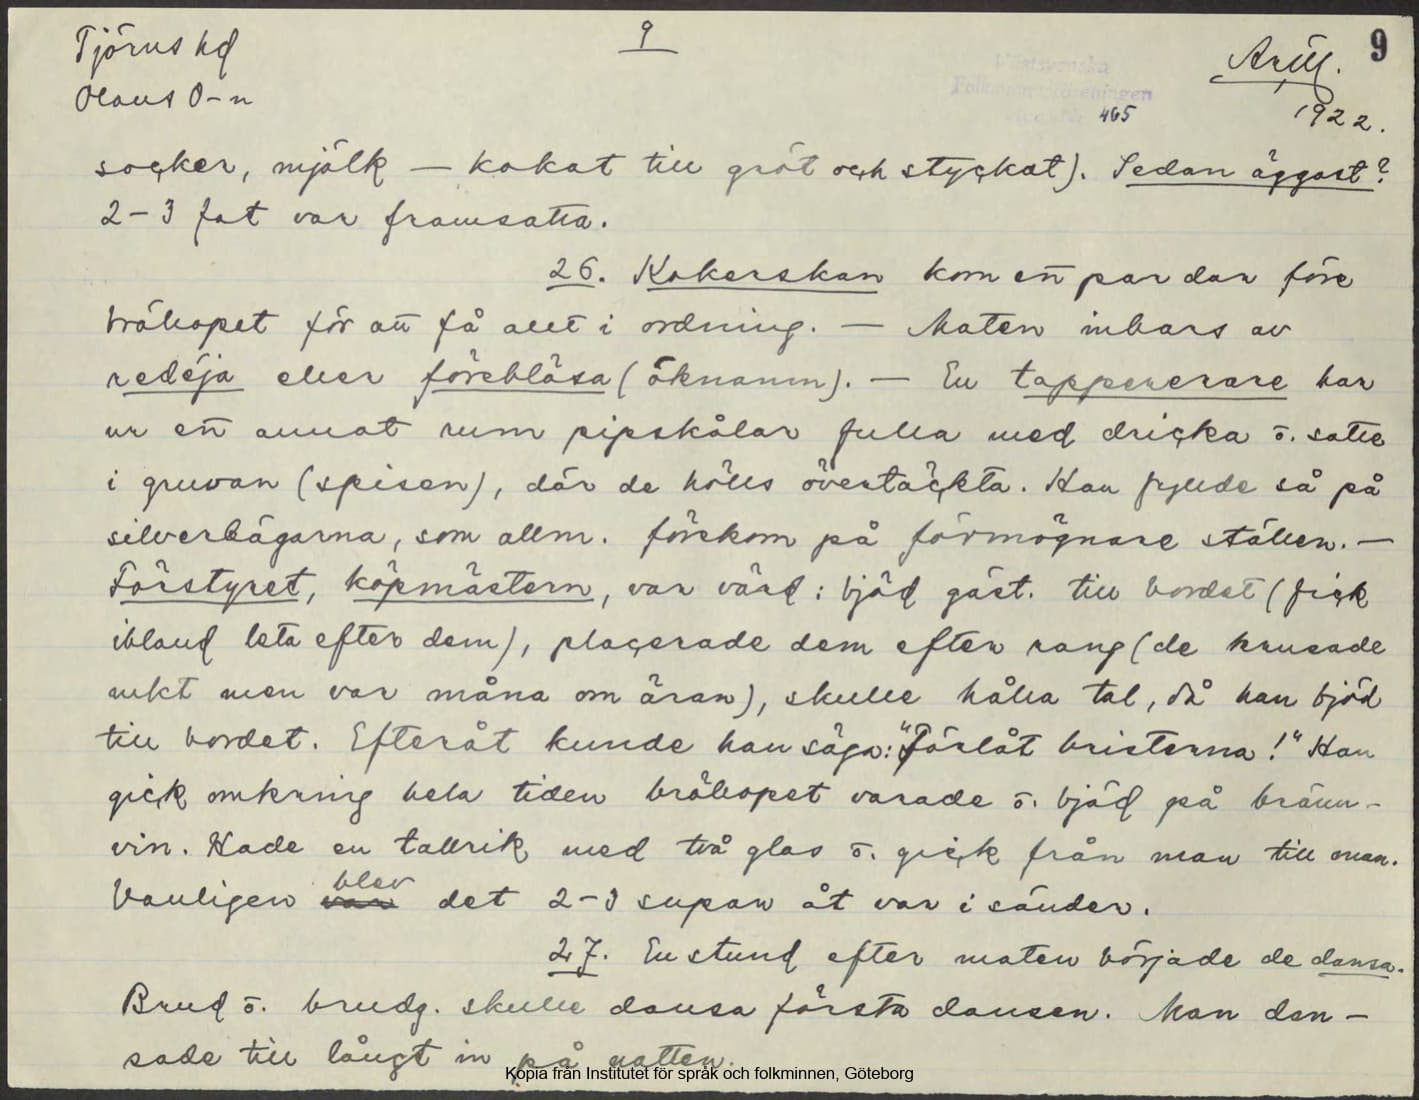 Tjörns hd
9
Arill.
9
Olaus O-n
Västsvenska
Folkminnesföreningen
465
1922.
socker, mjölk — kokat till gröt och styckat). Sedan äggost?
2-3 fat var framsatta.
26. Kokerskan kom ett par dar före
bröllopet för att få allt i ordning. — Maten inbars av
redeja eller föreblåsa (öknamn). — En tappererare bar
ur ett annat rum pipskålar fulla med dricka o. satte
i gruvan (spisen), där de hölls övertäckta. Han fyllde så på
silverbägarna, som allm. förekom på förmögnare ställen. —
Förstyret, köpmästern, var värd: bjöd gäst. till bordet (fick
ibland leta efter dem), placerade dem efter rang (de krusade
mkt men var måna om äran), skulle hålla tal, då han bjöd
till bordet. Efteråt kunde han säga: "Förlåt bristerna!" Han
gick omkring hela tiden bröllopet varade o. bjöd på bränn-
vin. Hade en tallrik med två glas o. gick från man till man.
blev
Vanligen var det 2-3 supar åt var i sänder.
27. En stund efter maten började de dansa.
Brud o. brudg. skulle dansa första dansen. Man dan-
sade till långt in på natten.
Kopia från Institutet för språk och folkminnen, Göteborg